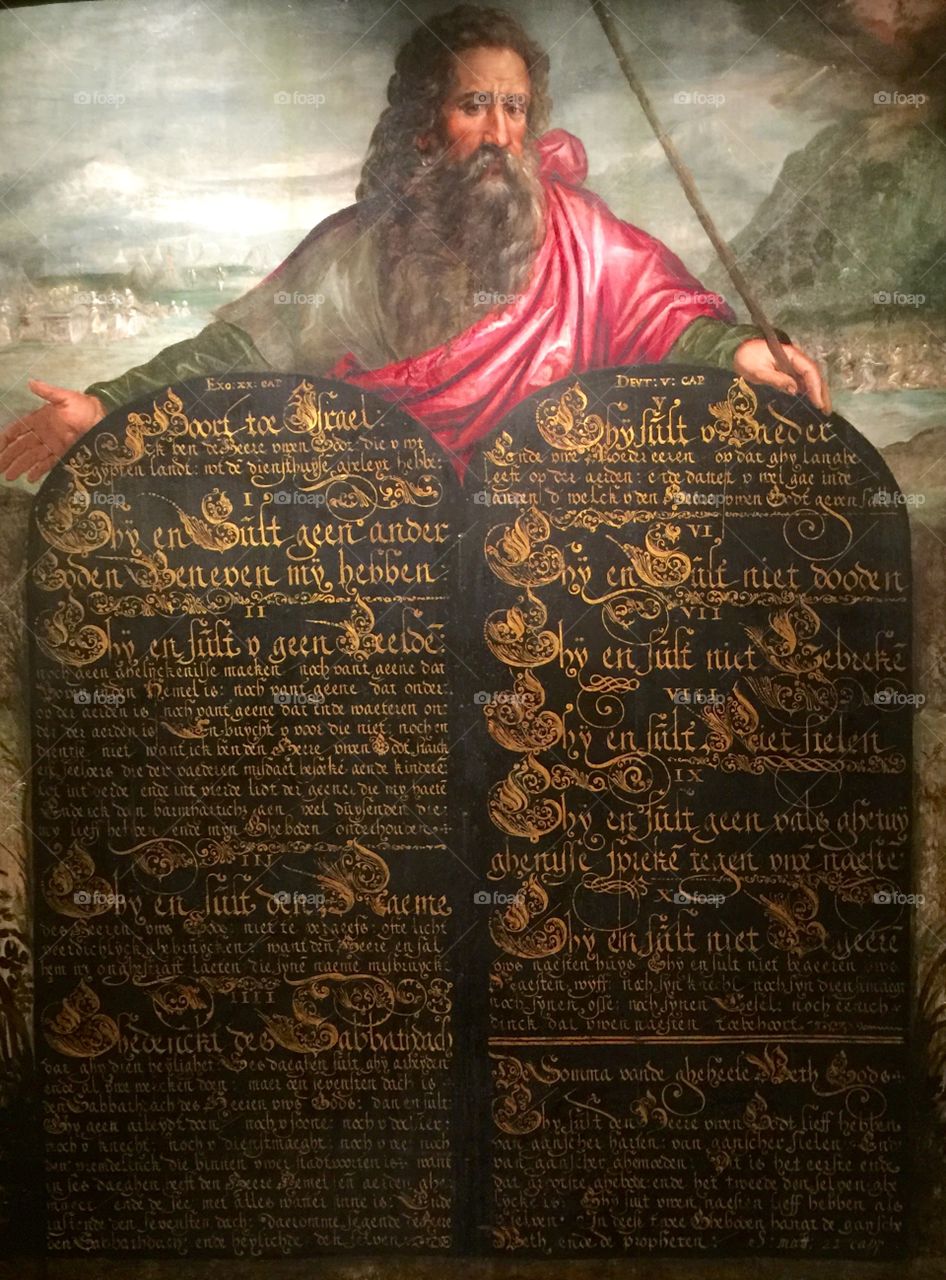 EXO: XX: CAP
Hoort toe Israel:
Ick ben de Heere uwen Godt die u wt
Egypten landt: wt de diensthuyse geleyt hebbe:
I
Ghÿ en Sult geen ander
Goden Beneven mÿ hebben:
II
Ghÿ en sult u geen Beeldē
noch geen ghelyckenisse maeken: noch vant geene dat
boven inden Hemel is: noch vant geene dat onder
op der aerden is: noch vant geene dat inde waeteren on:
der der aerden is: En buycht u voor die niet: noch en
dientse niet want ick ben den Heere uwen Godt
die der vaederen misdaet aende kinderē
die my haeten
Ende ick doen barmherticheyt aen veel duysenden die
my lieff hebben ende myn Ghebooden onderhouden:
III
Ghÿ en sult den Naeme
des Heeren uws Gods: niet te vergeefs: ofte licht
veerdichlyck gebruycken: want den Heere en sal
hem niet ongestraft laeten die synē naeme misbruyck:
IIII
Ghedenckt des Sabbathdach
dat ghy dien heylighet: Ses daeghen sult ghy arbeyden
ende al uwe wercken doen: maer den sevensten dach is
den Sabbathdach des Heeren uws Gods: dan en sult
Ghy geen arbeydt doen: noch u soone: noch u dochter:
noch u knecht: noch u dienstmaeght: noch u vee: noch
den vremdelinck die binnen uwer stadt poorten is: want
in ses daeghen heeft den Heere Hemel en aerden ghe
maect ende de see met alles watter inne is: Ende
ruste den sevensten dach: daeromme segende de Heere
den Sabbathdach: ende heylichde den selven:
DEVT: V: CAP
V
Ghÿ sult u Vaeder
Ende uwe Moeder eeren: op dat ghy langhe
leeft op der aerden: ende dattet u wel gae inde
landen d'welck u den Heere uwen Godt geven sal
VI
Ghÿ en Sult niet dooden
VII
Ghÿ en sult niet Eebrekē
VIII
Ghÿ en sult Niet stelen
IX
Ghÿ en sult geen vals ghetuÿ
ghenisse sprekē tegen uwē naestē
X
Ghÿ en sult niet Begeerē
uws naesten huys Ghy en sult niet begeeren uws
Naesten wyff: noch syn knecht noch syn dienstmaegt
noch synen osse: noch synen Eesel: noch eenich
dinck dat uwen naesten toebehoort
De Somma vande gheheele Weth Gods:
Ghy sult den Heere uwen Godt lieff hebben
van ganscher harten: van ganscher sielen: Ende
van ganscher ghemoeden: Dit is het eerste ende
dat grootste ghebodt ende het tweede den selven ghe
lycke is: Ghy sult uwen naesten lieff hebben als
u selven: In deese twee Ghebooden hangt de gansche
Weth ende de propheten: S: mat: 22 capp